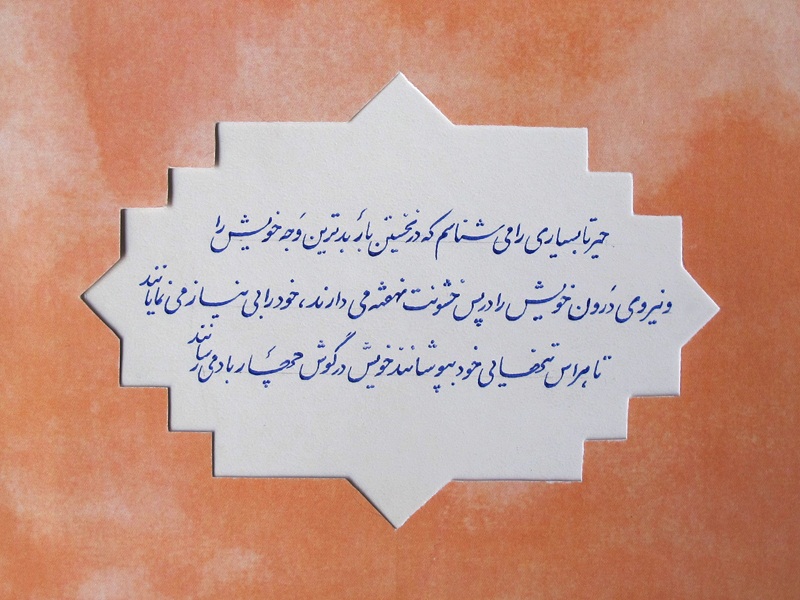 حیرتا بسیاری را می شناسم که در نخستین بار بدترین وجه خویش را
و نیروی درون خویش را در پس خشونت نهفته می دارند، خود را بی نیاز می نمایانند
تا هراس تنهایی خود بپوشانند خویش در گوش همه چار باد می رسانند